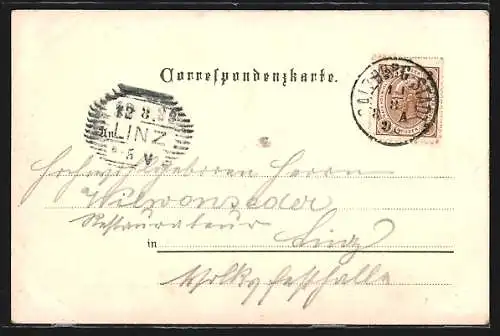 Correspondenzkarte.
SALZBURG STADT
12 8. 98
LINZ
5 V
An
Hochwohlgeboren Herrn
Wilwonseder
Restaurateur
in Linz
Volksfesthalle